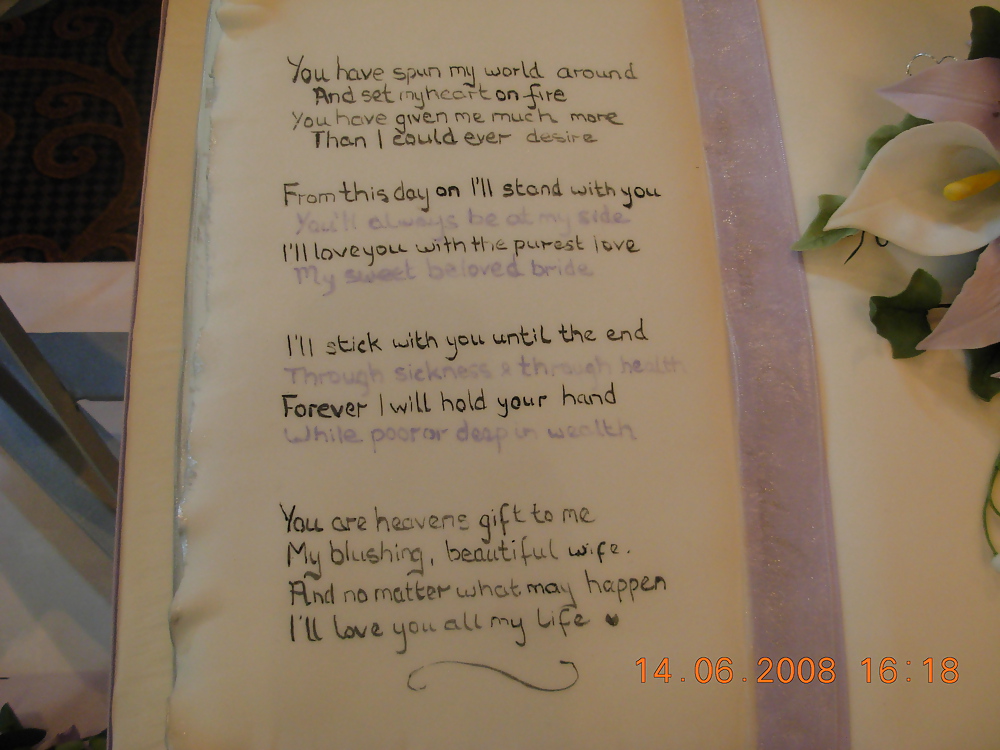 You have spun my world around
And set my heart on fire
You have given me much more
Than I could ever desire
From this day on I'll stand with you
You'll always be at my side
I'll love you with the purest love
My sweet beloved bride
I'll stick with you until the end
Through sickness & through health
Forever I will hold your hand
While poor or deep in wealth
You are heavens gift to me
My blushing, beautiful wife.
And no matter what may happen
I'll love you all my life ♥
14.06.2008 16:18